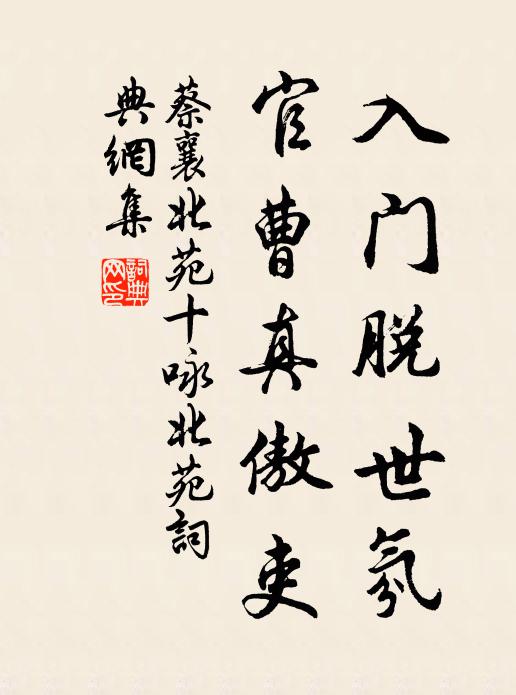 入门脱世氛
官曹真傲吏
蔡襄北苑十咏北苑詞
典網集
詞典网印